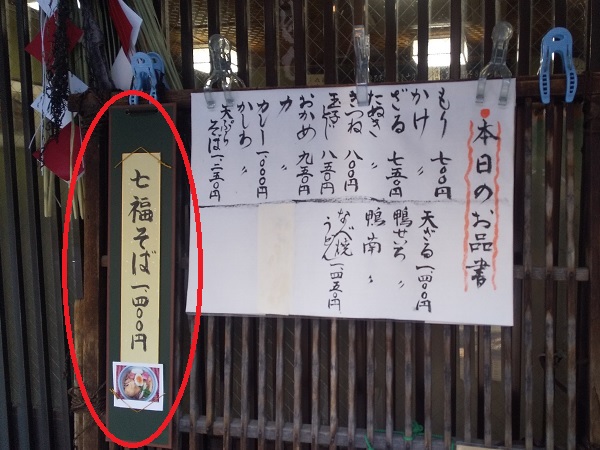 本日のお品書
もり 七〇〇円
かけ 〃
ざる 七五〇円
たぬき 〃
きつね 八〇〇円
玉子とじ 八五〇円
おかめ 九五〇円
力 〃
カレー 一、〇〇〇円
かしわ 〃
天ぷらそば 一、二五〇円
天ざる 一、四〇〇円
鴨せいろ 〃
鴨南 〃
なべ焼うどん 一、四五〇円
七福そば 一、四〇〇円